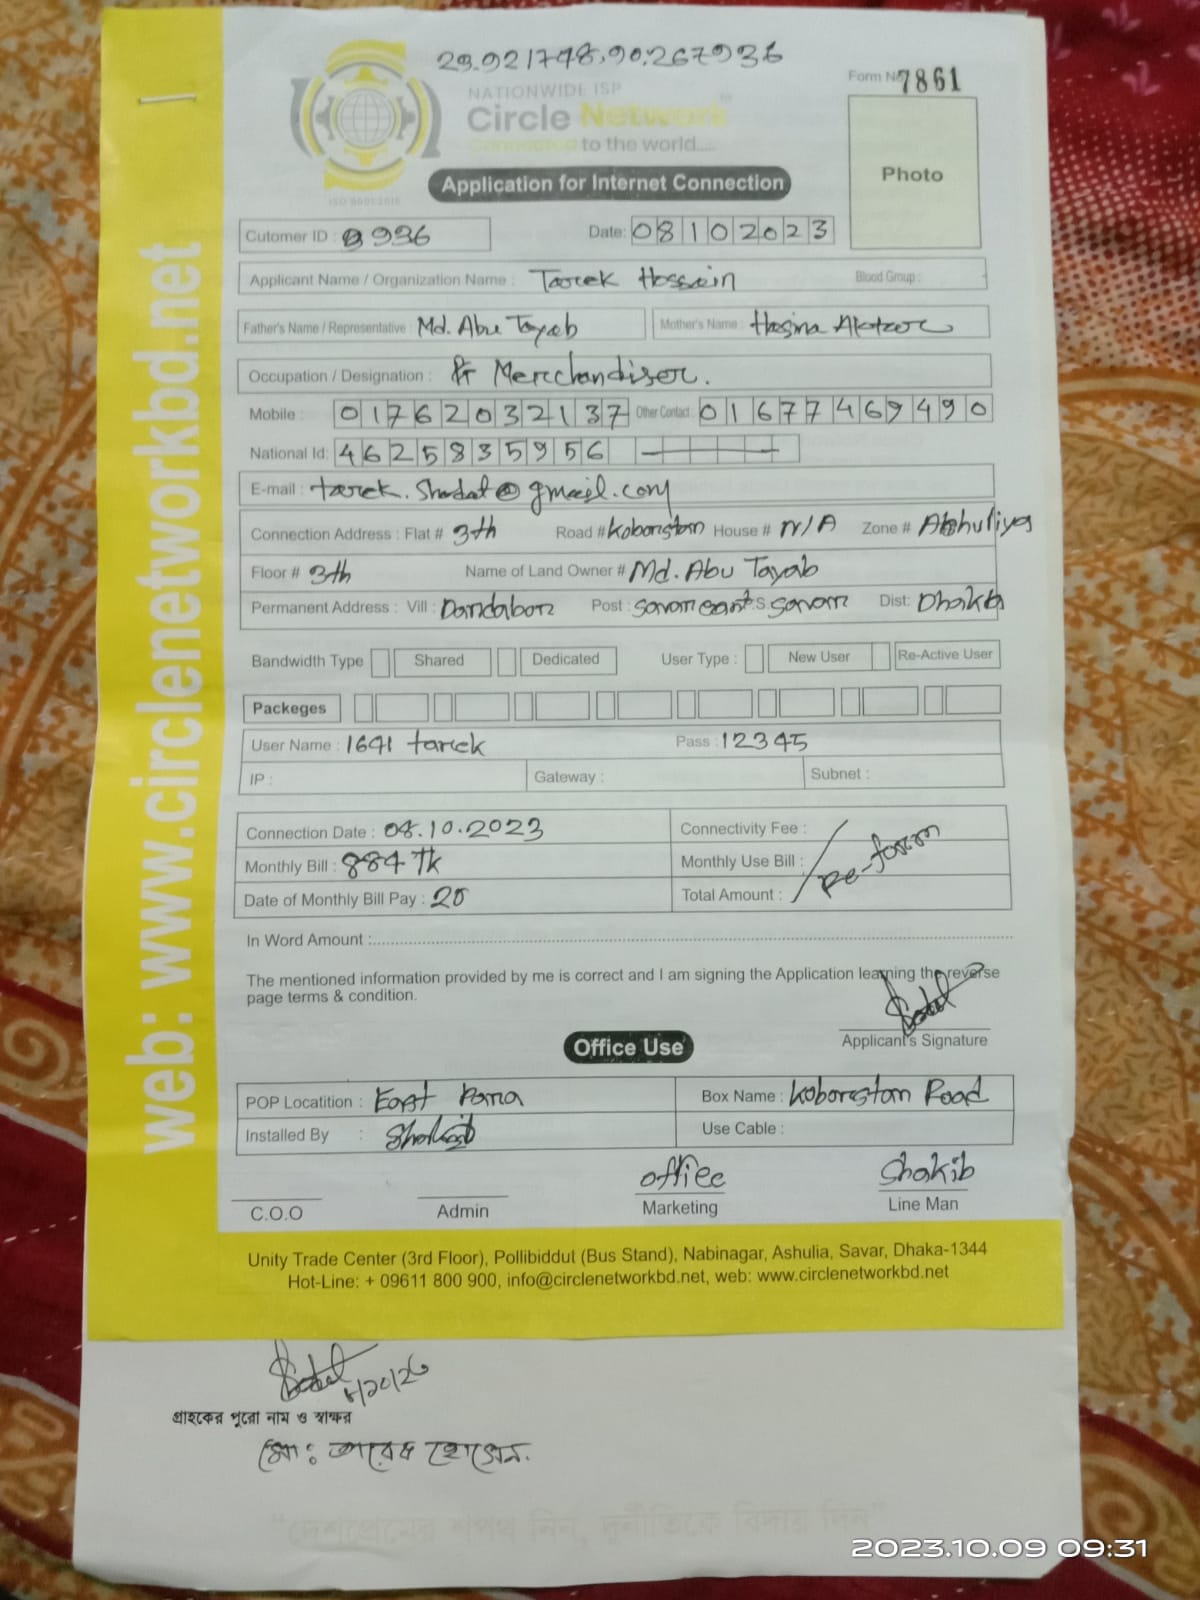 23.921748,90.267936
NATIONWIDE ISP
Circle Network
Connected to the world....
ISO 9001:2015
Form No 7861
Photo
Application for Internet Connection
Cutomer ID : 8996
Date: 08102023
Applicant Name / Organization Name : Tarek Hossain Blood Group :
Father's Name / Representative : Md. Abu Tayab Mother's Name : Hasina Akter
Occupation / Designation : Merchandiser.
Mobile : 01762032137 Other Contact : 01677469490
National Id: 4625835956
E-mail : tarek.Shadat@gmail.com
Connection Address : Flat # 3th Road # Koborstan House # N/A Zone # Ashuliya
Floor # 3th Name of Land Owner # Md. Abu Tayab
Permanent Address : Vill : Dandabor Post : Savar cant P.S. Savar Dist: Dhaka
Bandwidth Type Shared Dedicated User Type : New User Re-Active User
Packeges
User Name : 1641 tarek Pass : 12345
IP : Gateway : Subnet :
Connection Date : 08.10.2023 Connectivity Fee :
Monthly Bill : 884 Tk Monthly Use Bill : Re-form
Date of Monthly Bill Pay : 20 Total Amount :
In Word Amount :
The mentioned information provided by me is correct and I am signing the Application learning the reverse
page terms & condition.
Applicant's Signature
Office Use
POP Locatition : East Para Box Name : Koborstan Road
Installed By : Shakib Use Cable :
office Shakib
C.O.O Admin Marketing Line Man
Unity Trade Center (3rd Floor), Pollibiddut (Bus Stand), Nabinagar, Ashulia, Savar, Dhaka-1344
Hot-Line: + 09611 800 900, info@circlenetworkbd.net, web: www.circlenetworkbd.net
web: www.circlenetworkbd.net
গ্রাহকের পুরো নাম ও স্বাক্ষর
মো: তারেক হোসেন.
"দেশপ্রেমের শপথ নিন, দুর্নীতিকে বিদায় দিন"
2023.10.09 09:31